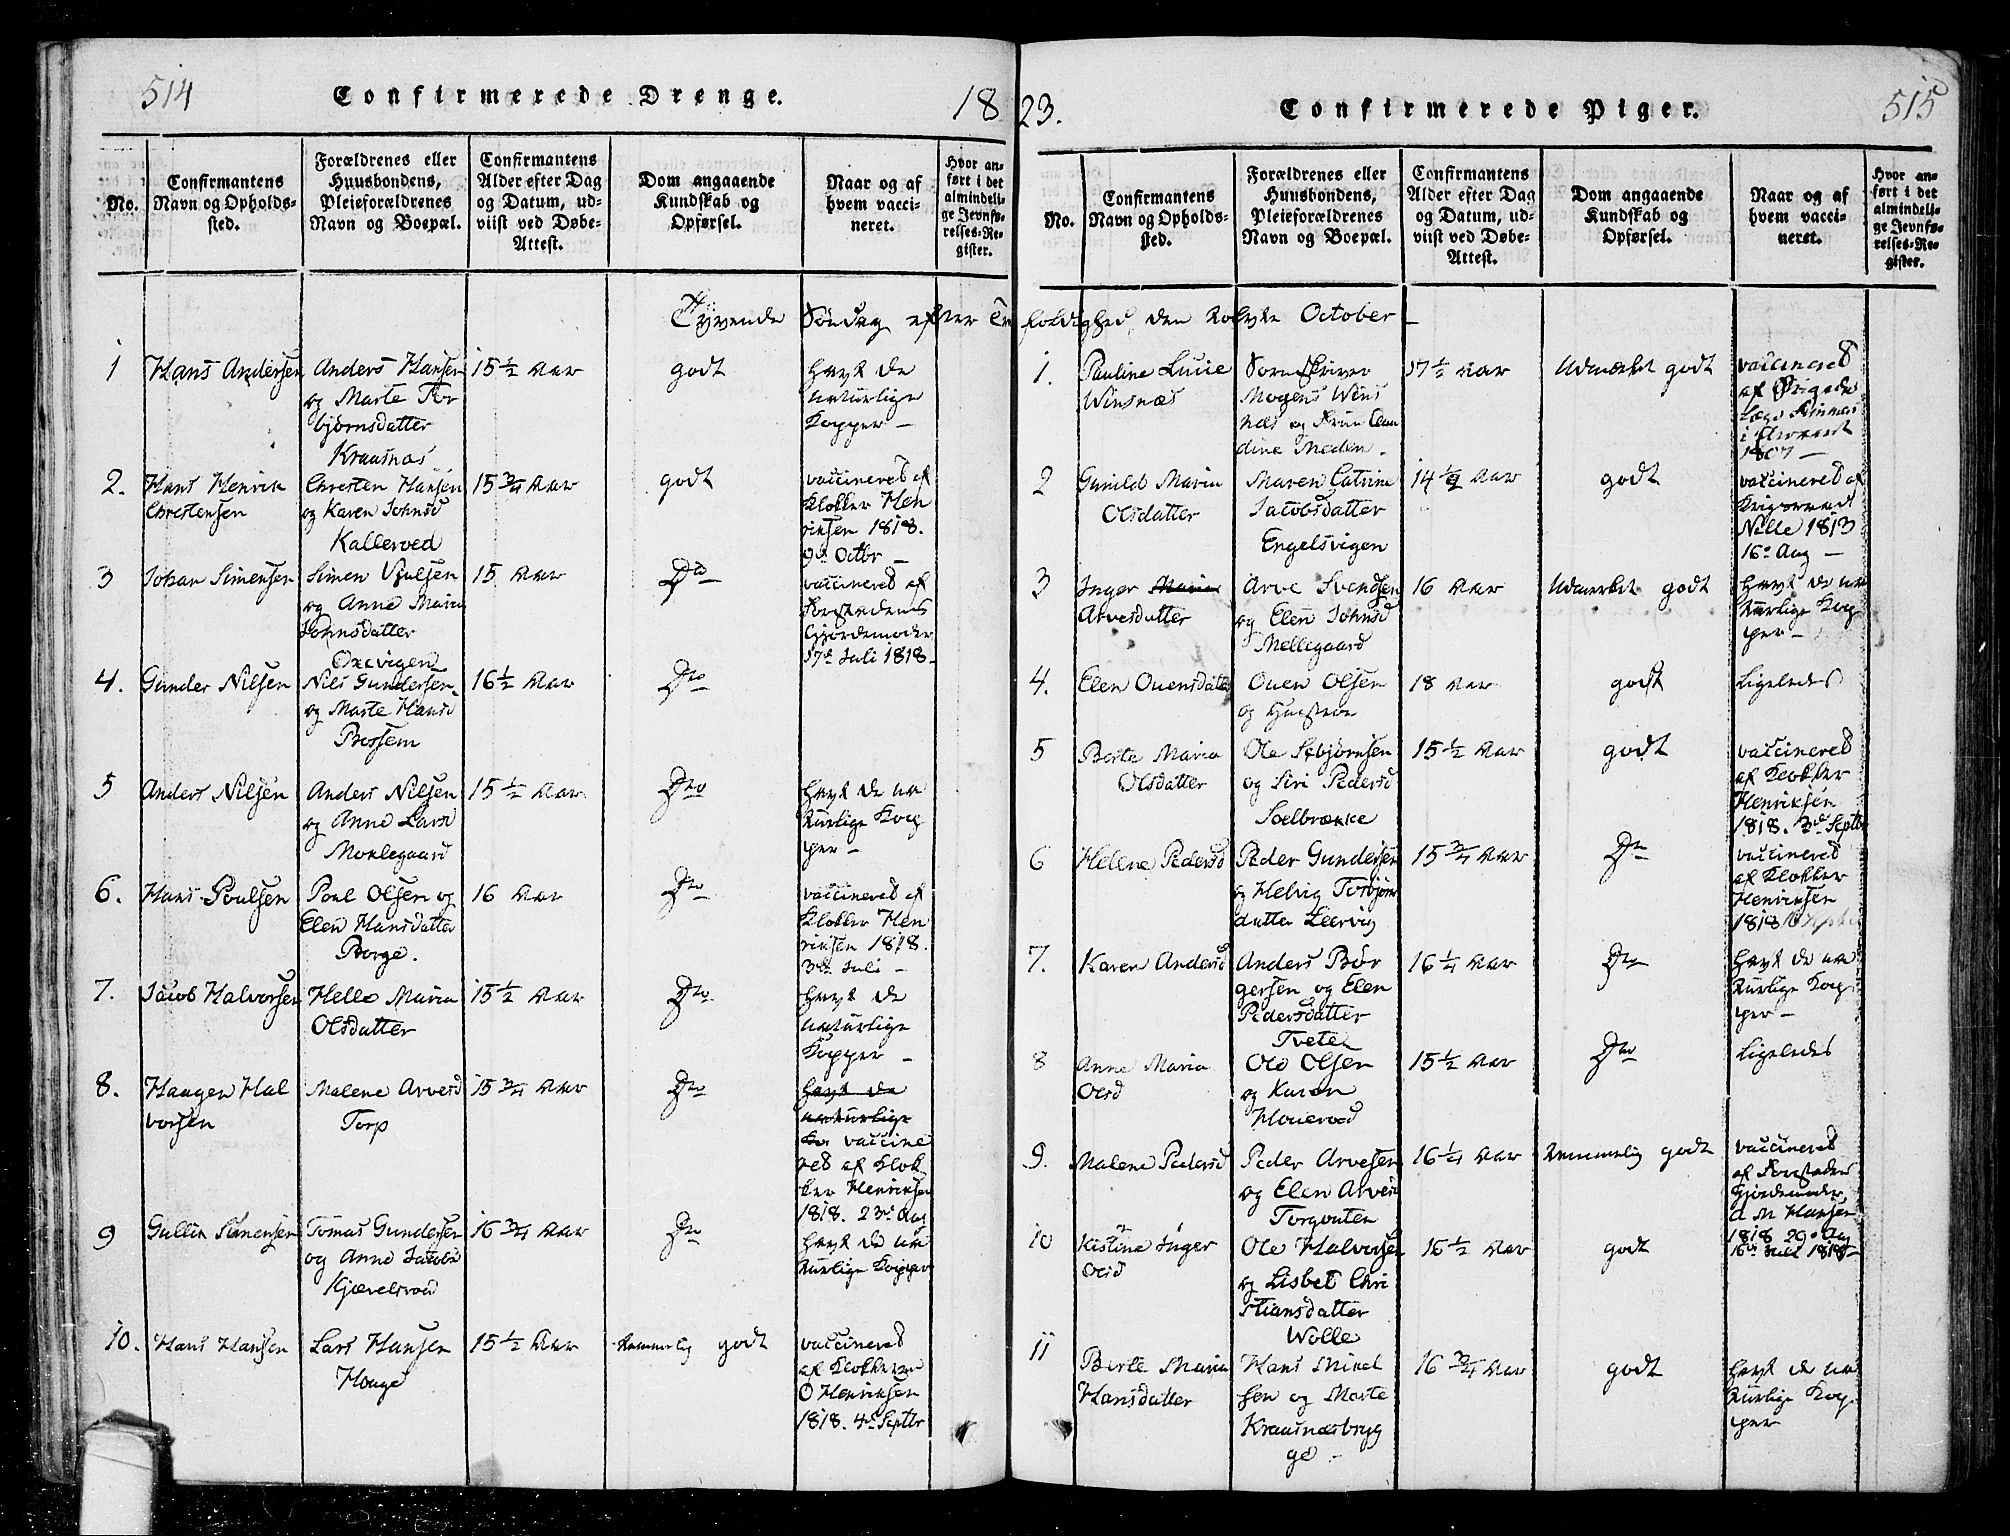 514
Confirmerede Drenge.
18
No.
Confirmantens Navn og Opholds-sted.
Forældrenes eller Huusbondens, Pleieforældrenes Navn og Boepæl.
Confirmantens Alder efter Dag og Datum, ud-viist ved Døbe-Attest.
Dom angaaende Kundskab og Opførsel.
Naar og af hvem vacci-neret.
Hvor an-ført i det almindeli-ge Jevnfø-relses-Re-gister.
Tyvende Søndag efter Tre
1
Hans Andersen
Anders Hansen
og Marte Tor
bjørnsdatter
Kraasnæs
15 1/2 Aar
godt
havt de
naturlige
Kopper –
2.
Hans Henrik
Christensen
Christen Hansen
og Karen Johnsd
Kallerød
15 3/4 Aar
godt
vaccineret af
Klokker Hen
riksen 1818.
9d Octbr –
3
Johan Simensen
Simen
og Anne Maria
Johnsdatter
Oxevigen
15 Aar
Do
vaccineret af
Gjordemoder
17d Juli 1818 –
4.
Gunder Nilsen
Nils Gundersen
og Marte Hansd
Bossem
16 1/2 Aar
Dto
5
Anders Nilsen
Anders Nilsen
og Anne Larsd
Moklegaard
15 1/2 Aar
Dto
havt de na
turlige Kop
per –
6.
Hans Poulsen
Poul Olsen og
Elen Hansdatter
Borge.
16 Aar
Dto
vaccineret af
Klokker Hen
riksen 1818.
3d Juli –
7.
Jacob Halvorsen
Helle Maria
Olsdatter
15 1/2 Aar
Dto
havt de
naturlige
Kopper –
8.
Haagen Hal
vorsen
Malene Arvesd
Torp
15 3/4 Aar
Dto
havt de
naturlige
Kop vaccine
ret af Klok
ker Henriksen
1818. 23d Aug
9
Tomas Gundersen
og Anne Jacobsd
16 3/4 Aar
Dto
havt de na
turlige Kopper
10.
Hans Hansen
Lars Hansen
Houge
15 1/2 Aar
temmelig godt
vaccineret
af Klokkeren
O Henriksen
1818. 4d Septbr
23.
Confirmerede Piger.
515
No.
Confirmantens Navn og Opholds-sted.
Forældrenes eller Huusbondens, Pleieforældrenes Navn og Boepæl.
Confirmantens Alder efter Dag og Datum, ud-viist ved Døbe-Attest.
Dom angaaende Kundskab og Opførsel.
Naar og af hvem vacci-neret.
Hvor an-ført i det almindeli-ge Jevnfø-relses-Re-gister.
foldighed, den tolvte October –
1.
Pauline Lucie
Winsnæs
Sorenskriver
Mogens Wins
næs og Frue Clau
dine Meden –
17 1/2 Aar
Udmærket godt
vaccineret
af Brigade
Læge
i
1807 –
2
Gunild Maria
Olsdatter
Maren Catrine
Jacobsdatter
Engelsvigen
14 1/2 Aar
godt
vaccineret af
Nille 1813
16d Aug –
3
Inger Maria
Arvesdatter
Arve Svendsen
og Elen Johnsd
Mellegaard
16 Aar
Udmærket godt
havt de na
turlige Kop
per –
4.
Elen Ouensdatter
Ouen Olsen
og Hustrue
18 Aar
godt
Ligeledes
5
Berte Maria
Olsdatter
Ole Esbjørnsen
og Siri Pedersd
Soelbrække
15 1/2 Aar
godt
vaccineret
af Klokker
Henriksen
1818. 3d Septbr
6
Helene Pedersd
Peder Gundersen
og Helvig Torbjørns
datter Leervig
15 3/4 Aar
Dto
vaccineret
af Klokker
Henriksen
1818
7.
Karen Andersd
Anders Bør
gersen og Elen
Pedersdatter
Tveter
16 1/4 Aar
Dto
havt de na
turlige Kop
per –
8
Anne Maria
Olsd
Ole Olsen
og Karen
15 1/2 Aar
Dto
Ligeledes
9.
Malene Pedersd
Peder Arvesen
og Elen Arvesd
16 1/4 Aar
temmelig godt
vaccineret
af
Gjordemoder
A M Hansen
1818 29d Aug
10
Kistine Inger
Olsd
Ole Halvorsen
og Lisbet Chri
stiansdatter
Wolle
16 1/2 Aar
godt
16d Juli 1818 –
11
Berte Maria
Hansdatter
Hans Mikel
sen og Marte
Kraasnæsbryg
ge –
16 3/4 Aar
godt
havt de na
turlige Kop
per